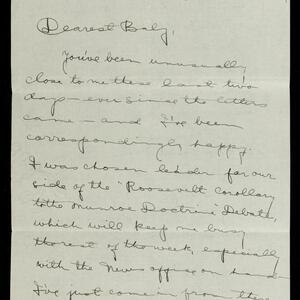 Dearest Baby,
You've been unusually
close to me these last two
days - ever since the letters
came - and I've been
correspondingly happy.
I was chosen leader for our
side of the "Roosevelt Corollary
to the Munroe Doctrine" Debate,
which will keep me busy
the rest of the week, especially
with the News off on hand -
I've just come in from the